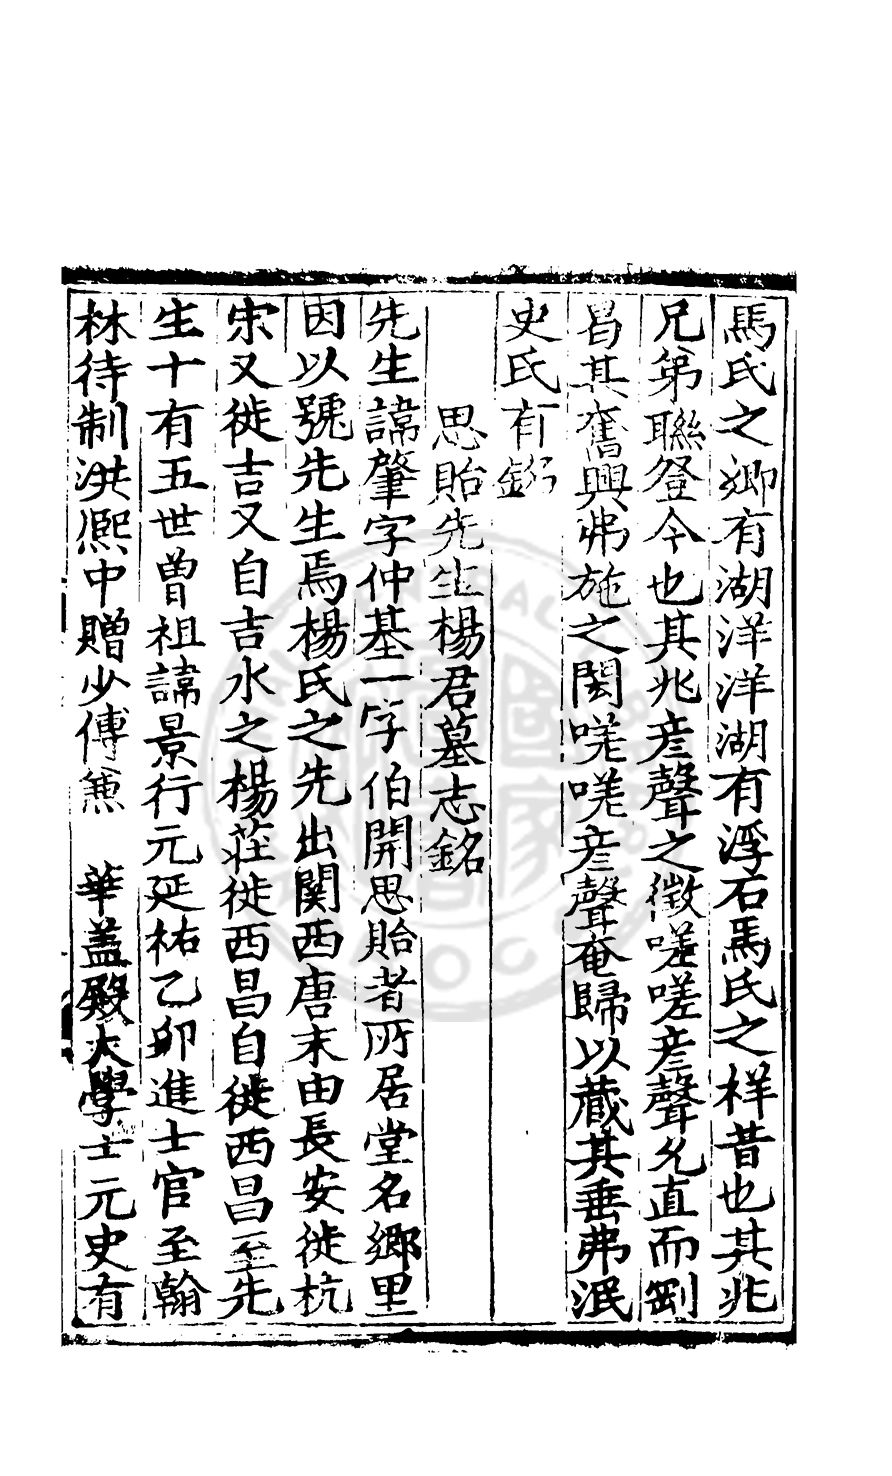 馬氏之鄉有湖洋洋湖有浮石馬氏之祥昔也其兆
兄第聯登今也其兆彦聲之徵嗟嗟彦聲允直而劉
昌其奮興弗施之閎嗟嗟彦聲奄歸以蔵其垂弗泯
史氏有銘
思貽先生楊君墓志銘
先生諱肇字仲基一字伯開思貽者所居堂名鄉里
因以號先生焉楊氏之先出関西唐末由長安徙杭
宋又徙吉又自吉水之楊莊徙西昌自徙西昌至先
生十有五世曾祖諱景行元延祐乙卯進士官至翰
林待制洪熙中贈少傅兼 華盖殿大學士元史有